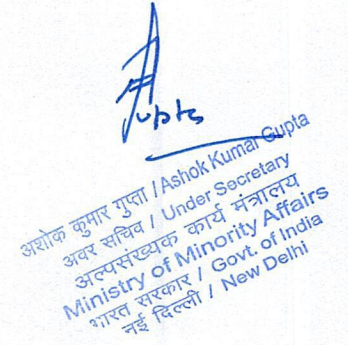 Gupta
अशोक कुमार गुप्ता / Ashok Kumar Gupta
अवर सचिव / Under Secretary
अल्पसंख्यक कार्य मंत्रालय
Ministry of Minority Affairs
भारत सरकार / Govt. of India
नई दिल्ली / New Delhi